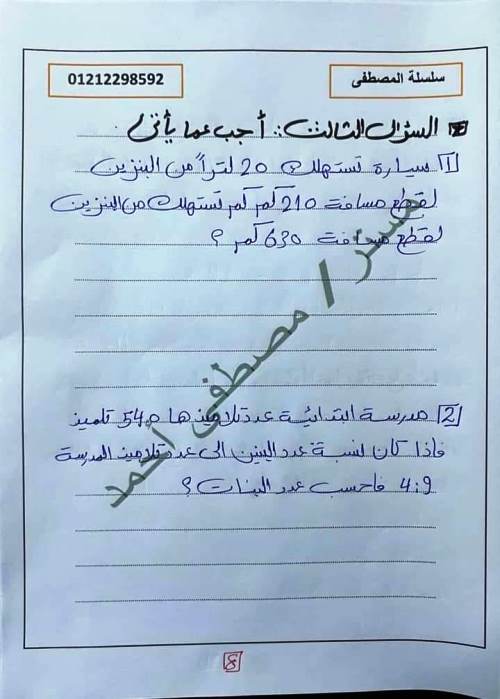 سلسلة المصطفى
01212298592
السؤال الثالث : أجب عما يأتى /
[1] سيارة تستهلك 20 لتراً من البنزين
لقطع مسافة 210 كم كم تستهلك من البنزين
لقطع مسافة 630 كم ؟
[2] مدرسة ابتدائية عدد تلاميذها 540 تلميذ
فاذا كان نسبة عدد البنين الى عدد تلاميذ المدرسة
4:9 فاحسب عدد البنات ؟
مستر / مصطفى احمد
8